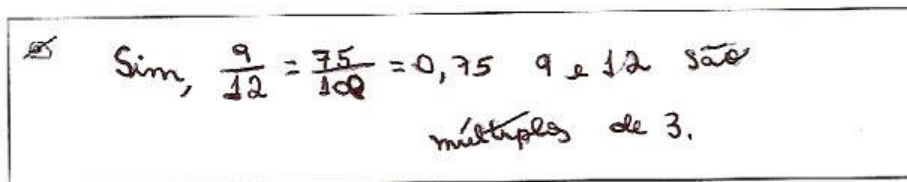 Sim, 9/12 = 75/100 = 0,75 9 e 12 são
múltiplos de 3.